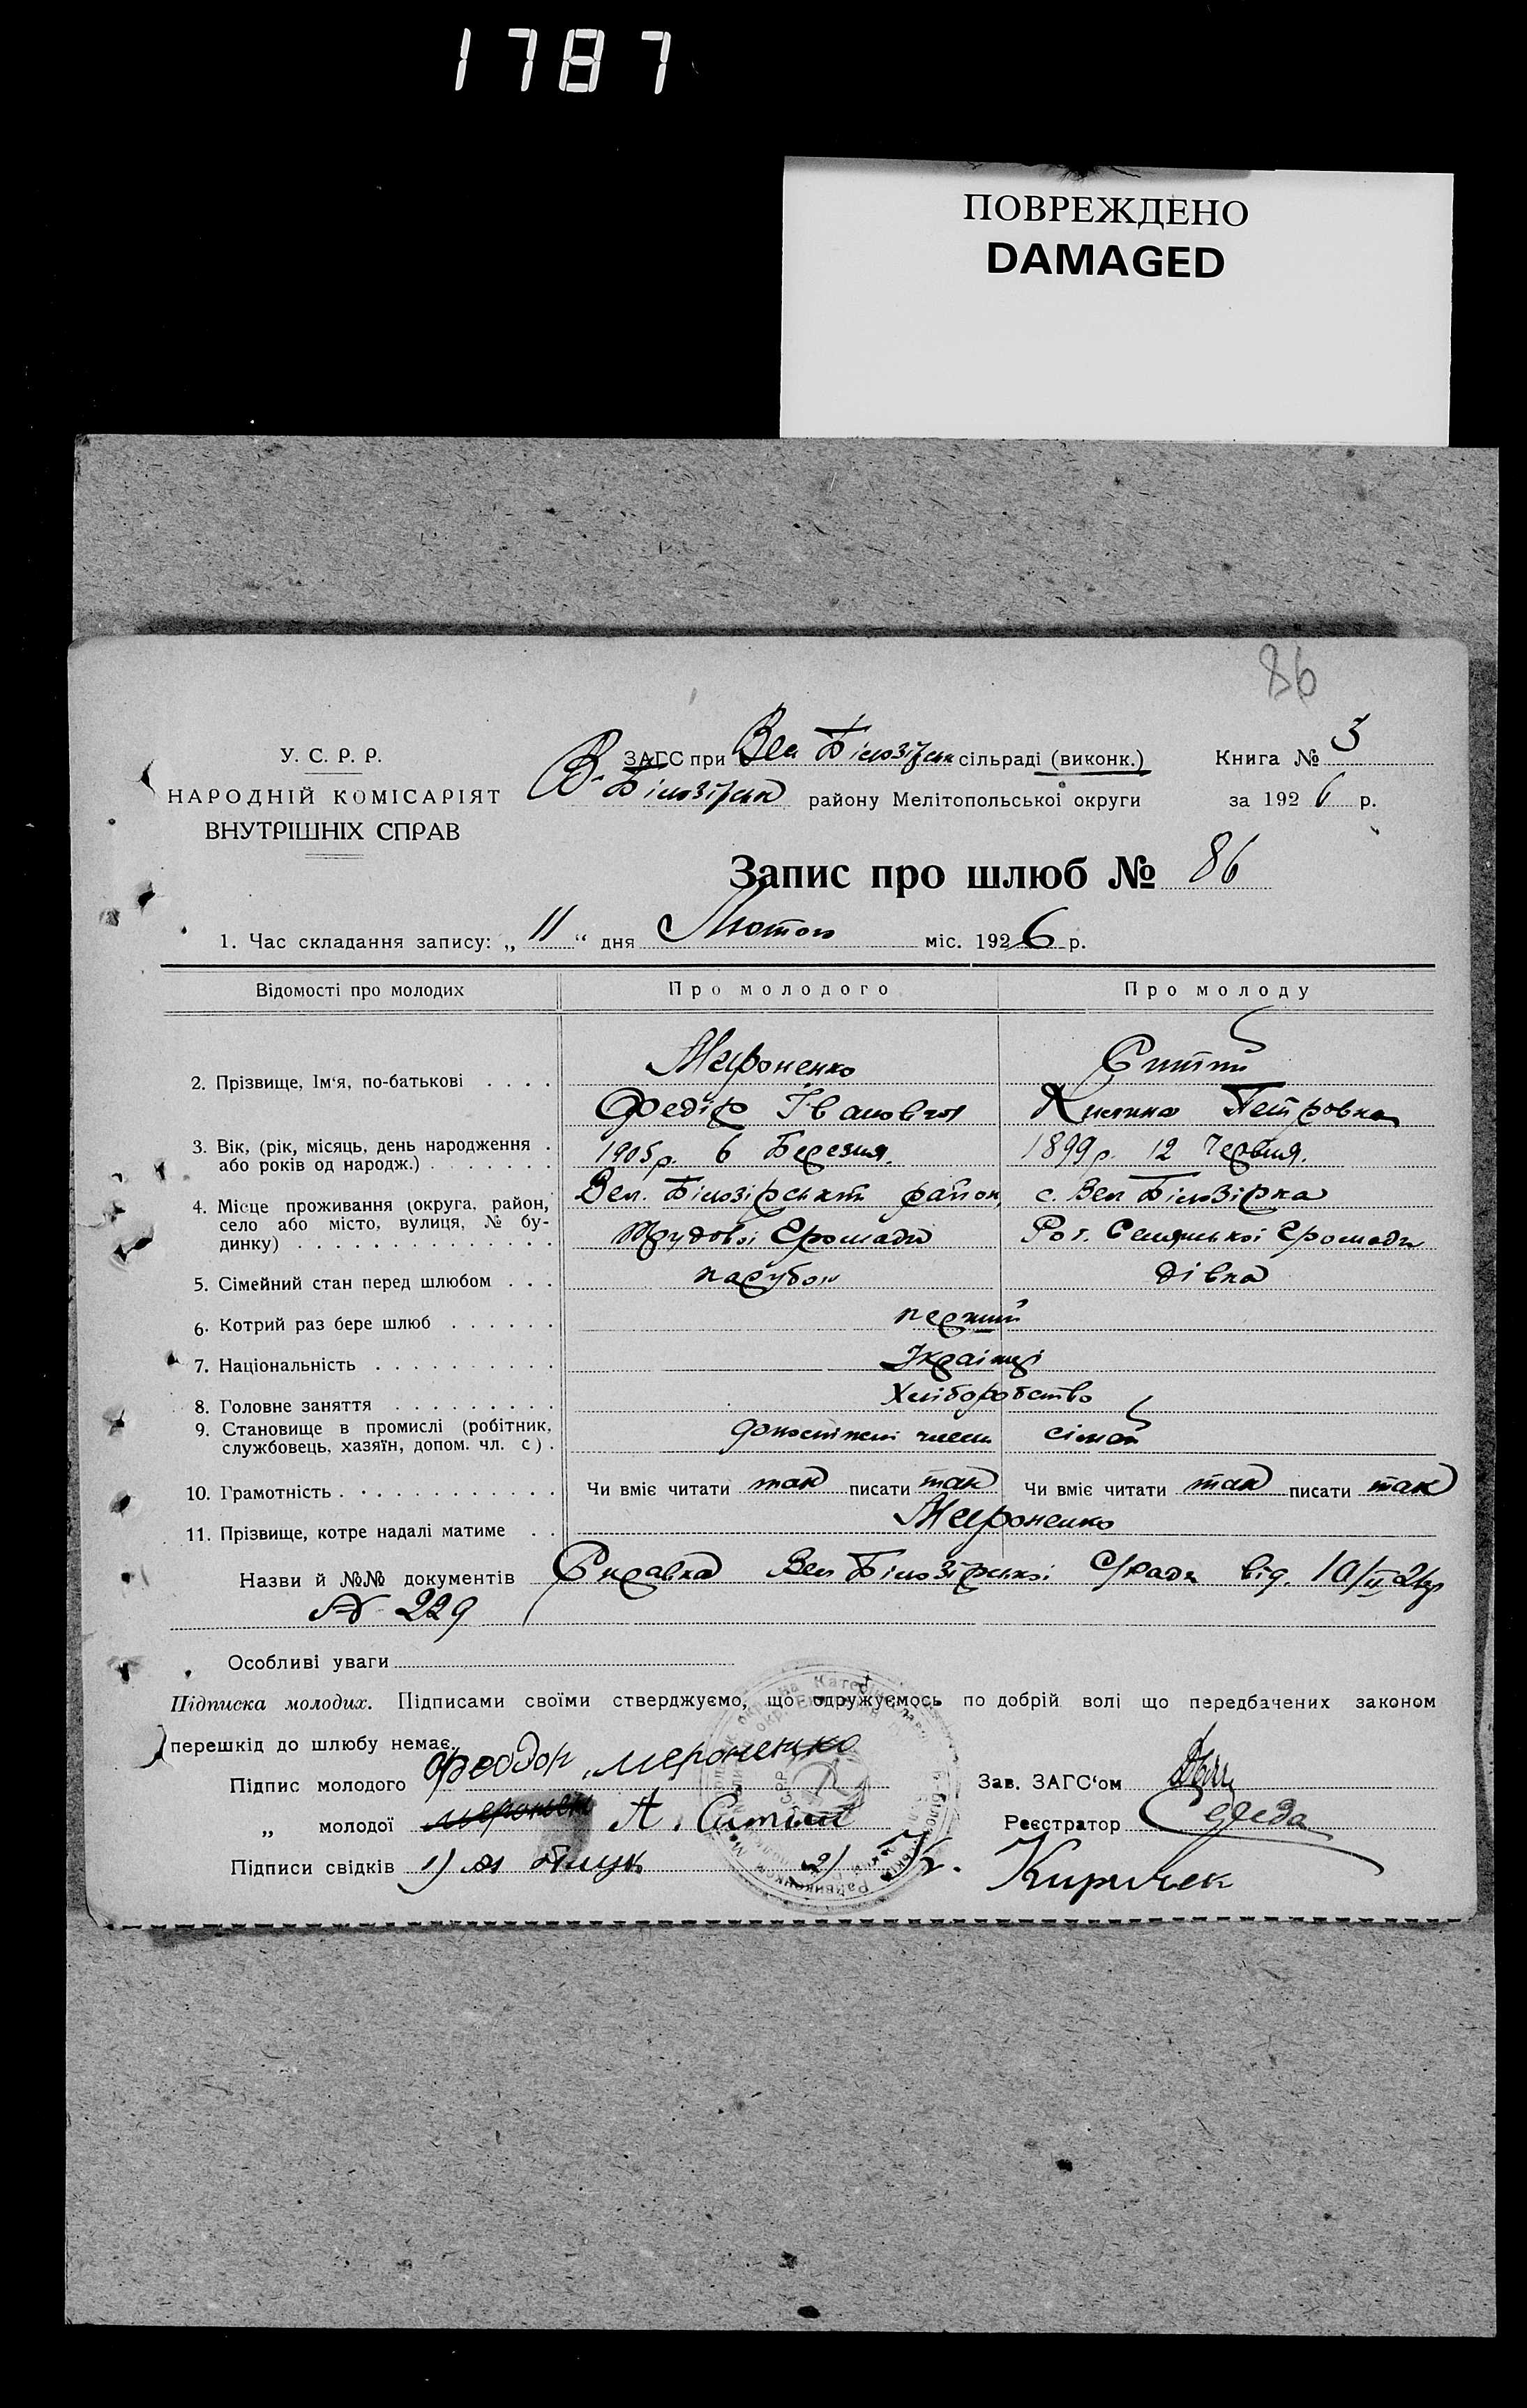 1787
ПОВРЕЖДЕНО
DAMAGED
86
У. С. Р. Р.
НАРОДНІЙ КОМІСАРІЯТ
ВНУТРІШНІХ СПРАВ
ЗАГС при Вел Білозірськ сільраді (виконк.)
В-Білозірськ району Мелітопольської округи
Книга № 3
за 1926 р.
Запис про шлюб № 86
1. Час складання запису: „ 11 “ дня Лютого міс. 1926 р.
Відомості про молодих Про молодого Про молоду
2. Прізвище, Ім‘я, по-батькові . . . . Мероненко Ситий
Федір Іванович Петровна
3. Вік, (рік, місяць, день народження . 1905 р. 6 Березня. 1899 р. 12 Червня.
або років од народж.) . . . . . . .
4. Місце проживання (округа, район, Вел. Білозірський район, с. Вел Білозірка
село або місто, вулиця, № бу-
динку) . . . . . . . . . . . . . . Трудової Громади Рог. Селянської Громади
5. Сімейний стан перед шлюбом . . . парубок дівка
6. Котрий раз бере шлюб . . . . . . перший
7. Національність . . . . . . . . . . Українці
8. Головне заняття . . . . . . . . . Хліборобство
9. Становище в промислі (робітник,
службовець, хазяїн, допом. чл. с) . члени сімей
10. Грамотність . . . . . . . . . . . . Чи вміє читати так писати так Чи вміє читати так писати так
11. Прізвище, котре надалі матиме . . Мероненко
Назви й №№ документів Справка Вел Білозірської С/ради від. 10/II 26р
№ 229
Особливі уваги
Підписка молодих. Підписами своїми стверджуємо, що одружуємось по добрій волі що передбачених законом
перешкід до шлюбу немає.
Підпис молодого Феодор Мероненко
Зав. ЗАГС‘ом
„ молодої А. Ситий
Реєстратор
Підписи свідків 1) 2) Киричек